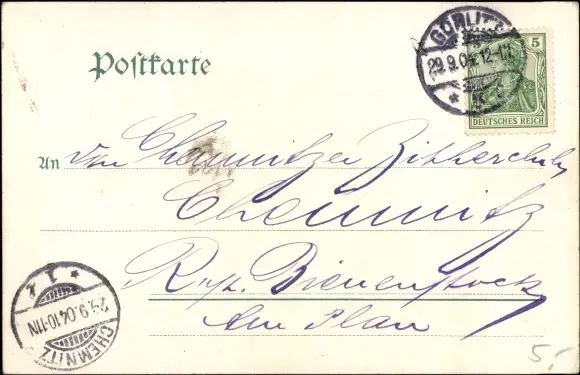 Postkarte
GÖRLITZ
29.9.04. 12-1N.
5
DEUTSCHES REICH
An den Chemnitzer Zitherclub
Chemnitz
Rest. Bienenstock
Am Plan
CHEMNITZ
29.9.04.10-11N
5,-